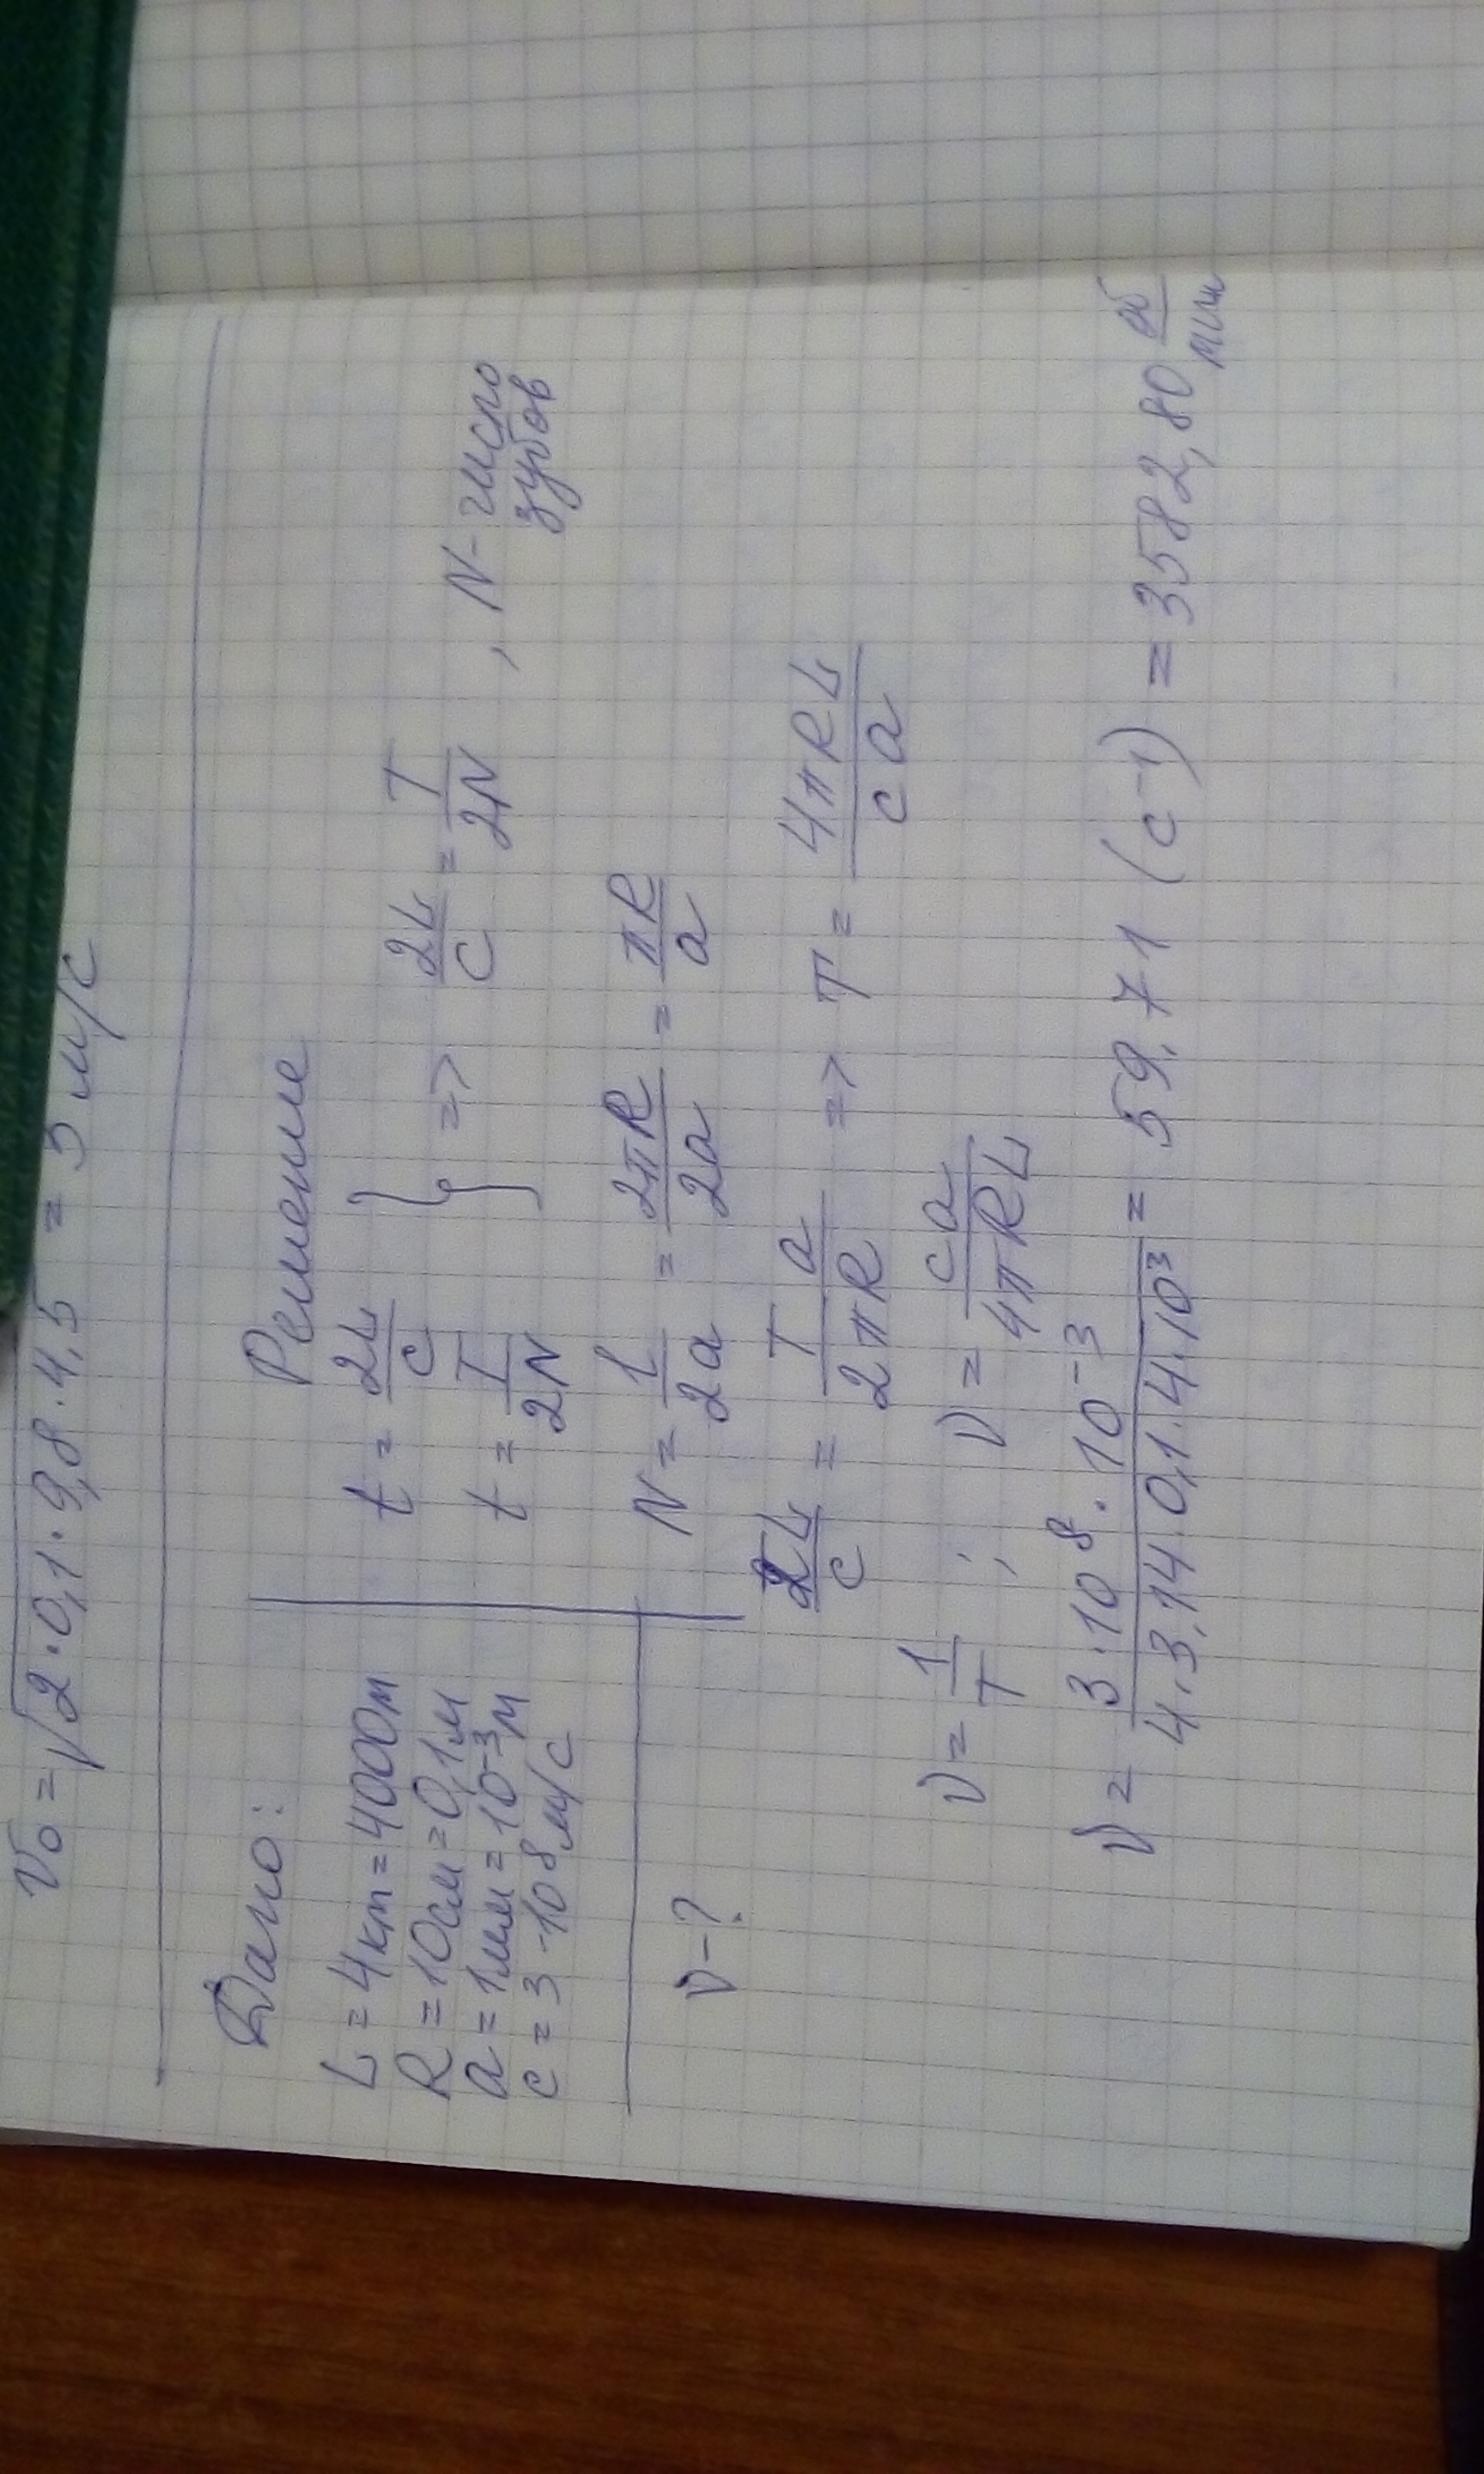 v₀ = √2·0,1·9,8·4,5 = 3 м/с
Дано:
L = 4км = 4000м
R = 10см = 0,1м
a = 1мм = 10⁻³м
c = 3·10⁸ м/с
ν-?
Решение
t = 2L/c
t = T/2N } => 2L/c = T/2N , N- число зубов
N = l/2a = 2πR/2a = πR/a
2L/c = T a/2πR => T = 4πRL/ca
ν = 1/T ; ν = ca/4πRL
ν = 3·10⁸·10⁻³/4·3,14·0,1·4·10³ = 59,71 (с⁻¹) = 3582,80 об/мин